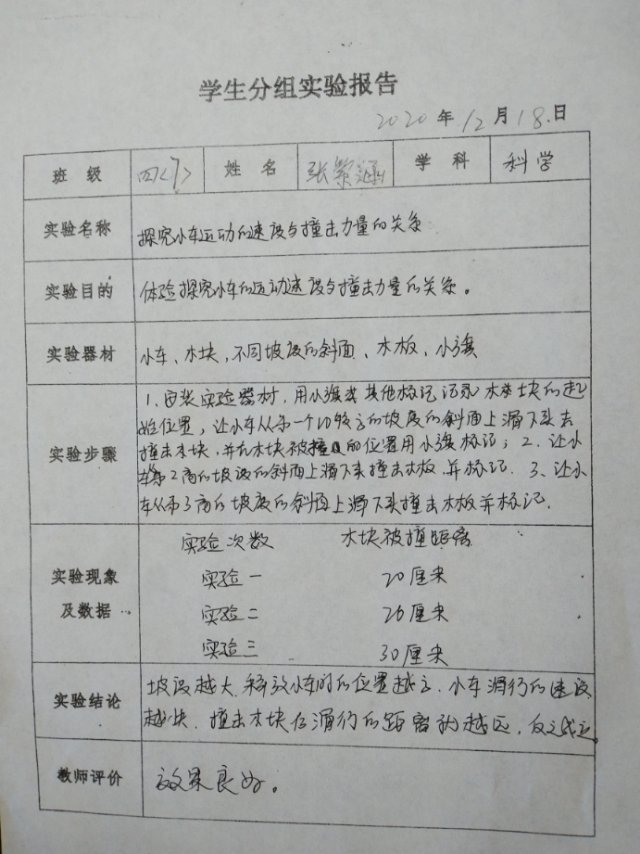 学生分组实验报告
2020年12月18日
班级 四<7> 姓名 张紫涵 学科 科学
实验名称 探究小车运动的速度与撞击力量的关系
实验目的 体验探究小车的运动速度与撞击力量的关系。
实验器材 小车、木块，不同坡度的斜面、木板、小旗
实验步骤
1、安装实验器材，用小旗或其他标记记录木块的起
始位置，让小车从第一个比较高的坡度的斜面上滑下来去
撞击木块，并在木块被撞的位置用小旗标记；2、让小
车第2高的坡度的斜面上滑下来撞击木板并标记. 3、让小
车从第3高的坡度的斜面上滑下来撞击木板并标记.
实验现象
及数据
实验次数 木块被撞距离
实验一 20厘米
实验二 26厘米
实验三 30厘米
实验结论
坡度越大 释放小车时的位置越高. 小车滑行的速度
越快. 撞击木块后滑行的距离就越远，反之
教师评价 效果良好。